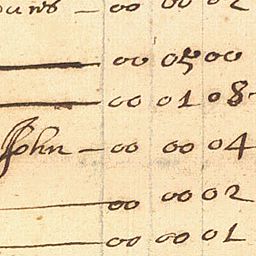 — 00 00 02
— 00 05 00
— 00 01 08
John — 00 00 04
— 00 00 02
— 00 00 01